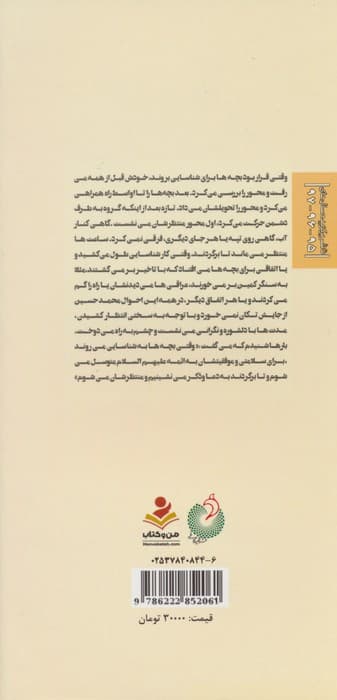 وقتی قرار بود بچه ها برای شناسایی بروند، خودش قبل از همه می
رفت و محور را بررسی می‌کرد. بعد بچه‌ها را تا اواسط راه همراهی
می‌کرد و محور را تحویلشان می‌داد. تازه بعد از اینکه گروه به طرف
دشمن حرکت می‌کرد، اول محور منتظرشان می نشست. گاهی کنار
آب، گاهی روی تپه یا هر جای دیگری، فرقی نمی کرد. ساعت ها
منتظر می ماند تا برگردند. وقتی کار شناسایی طول می‌کشید و
یا اتفاقی برای بچه‌ها می افتاد که با تاخیر بر می گشتند، مثلا
به سنگر کمین بر می خورند، عراقی ها می دیدنشان یا راه را گم
می کردند و یا هر اتفاق دیگر، در همه این احوال محمدحسین
از جایش تکان نمی خورد و با توجه به سختی انتظار کشیدن،
مدت ها با دلشوره و نگرانی می نشست و چشم به راه می دوخت.
بارها شنیدم که می گفت: «وقتی بچه ها به شناسایی می روند
، برای سلامتی و موفقیتشان به ائمه علیهم السلام متوسل می
شوم و تا برگردند به دعا و ذکر می نشینم و منتظرشان می شوم»
من و کتاب
۰۲۵۳۷۸۴۰۸۴۴-۶
9 786222 852061
قیمت: ۳۰۰۰۰ تومان